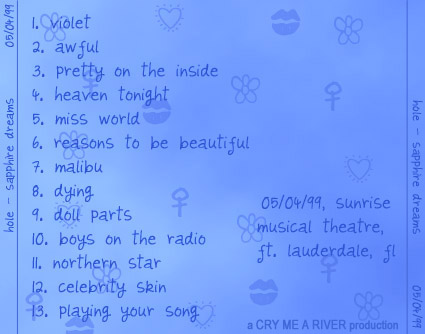 05/04/99
hole - sapphire dreams
1. violet
2. awful
3. pretty on the inside
4. heaven tonight
5. miss world
6. reasons to be beautiful
7. malibu
8. dying
9. doll parts
10. boys on the radio
11. northern star
12. celebrity skin
13. playing your song
05/04/99, sunrise
musical theatre,
ft. lauderdale, fl
a CRY ME A RIVER production
hole - sapphire dreams
05/04/99